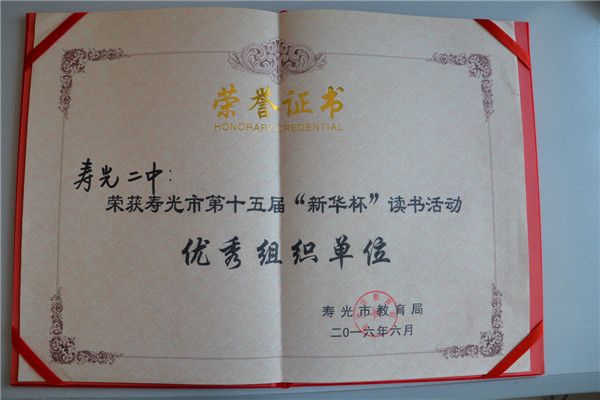 荣誉证书
HONORARY CREDENTIAL
寿光二中:
荣获寿光市第十五届“新华杯”读书活动
优秀组织单位
寿光市教育局
二〇一六年六月